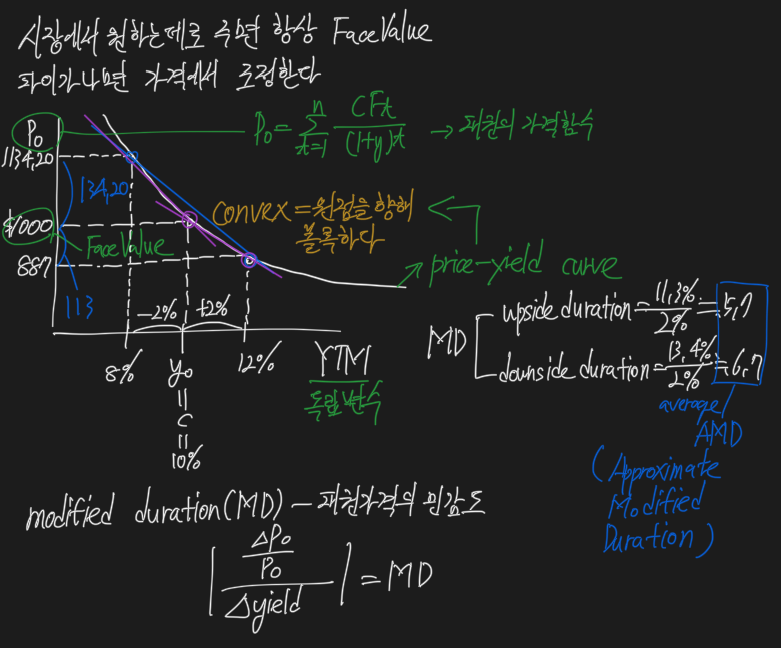 시장에서 원하는데로 주면 항상 FaceValue
차이가나면 가격에서 조정한다
P₀
P₀ = Σ n t=1 CFt/(1+y)t → 채권의 가격함수
1134,20
134,20
$1000
FaceValue
887
113
convex = 원점을 향해
볼록하다
price-yield curve
-2% +2%
8% y₀ 12% YTM
독립변수
=
C
=
10%
MD
upside duration = 11,3%/2% = 5,7
downside duration = 13,4%/2% = 6,7
average/
AMD
(Approximate
Modified
Duration)
modified duration(MD) - 채권가격의 민감도
| (ΔP₀/P₀)/Δyield | = MD